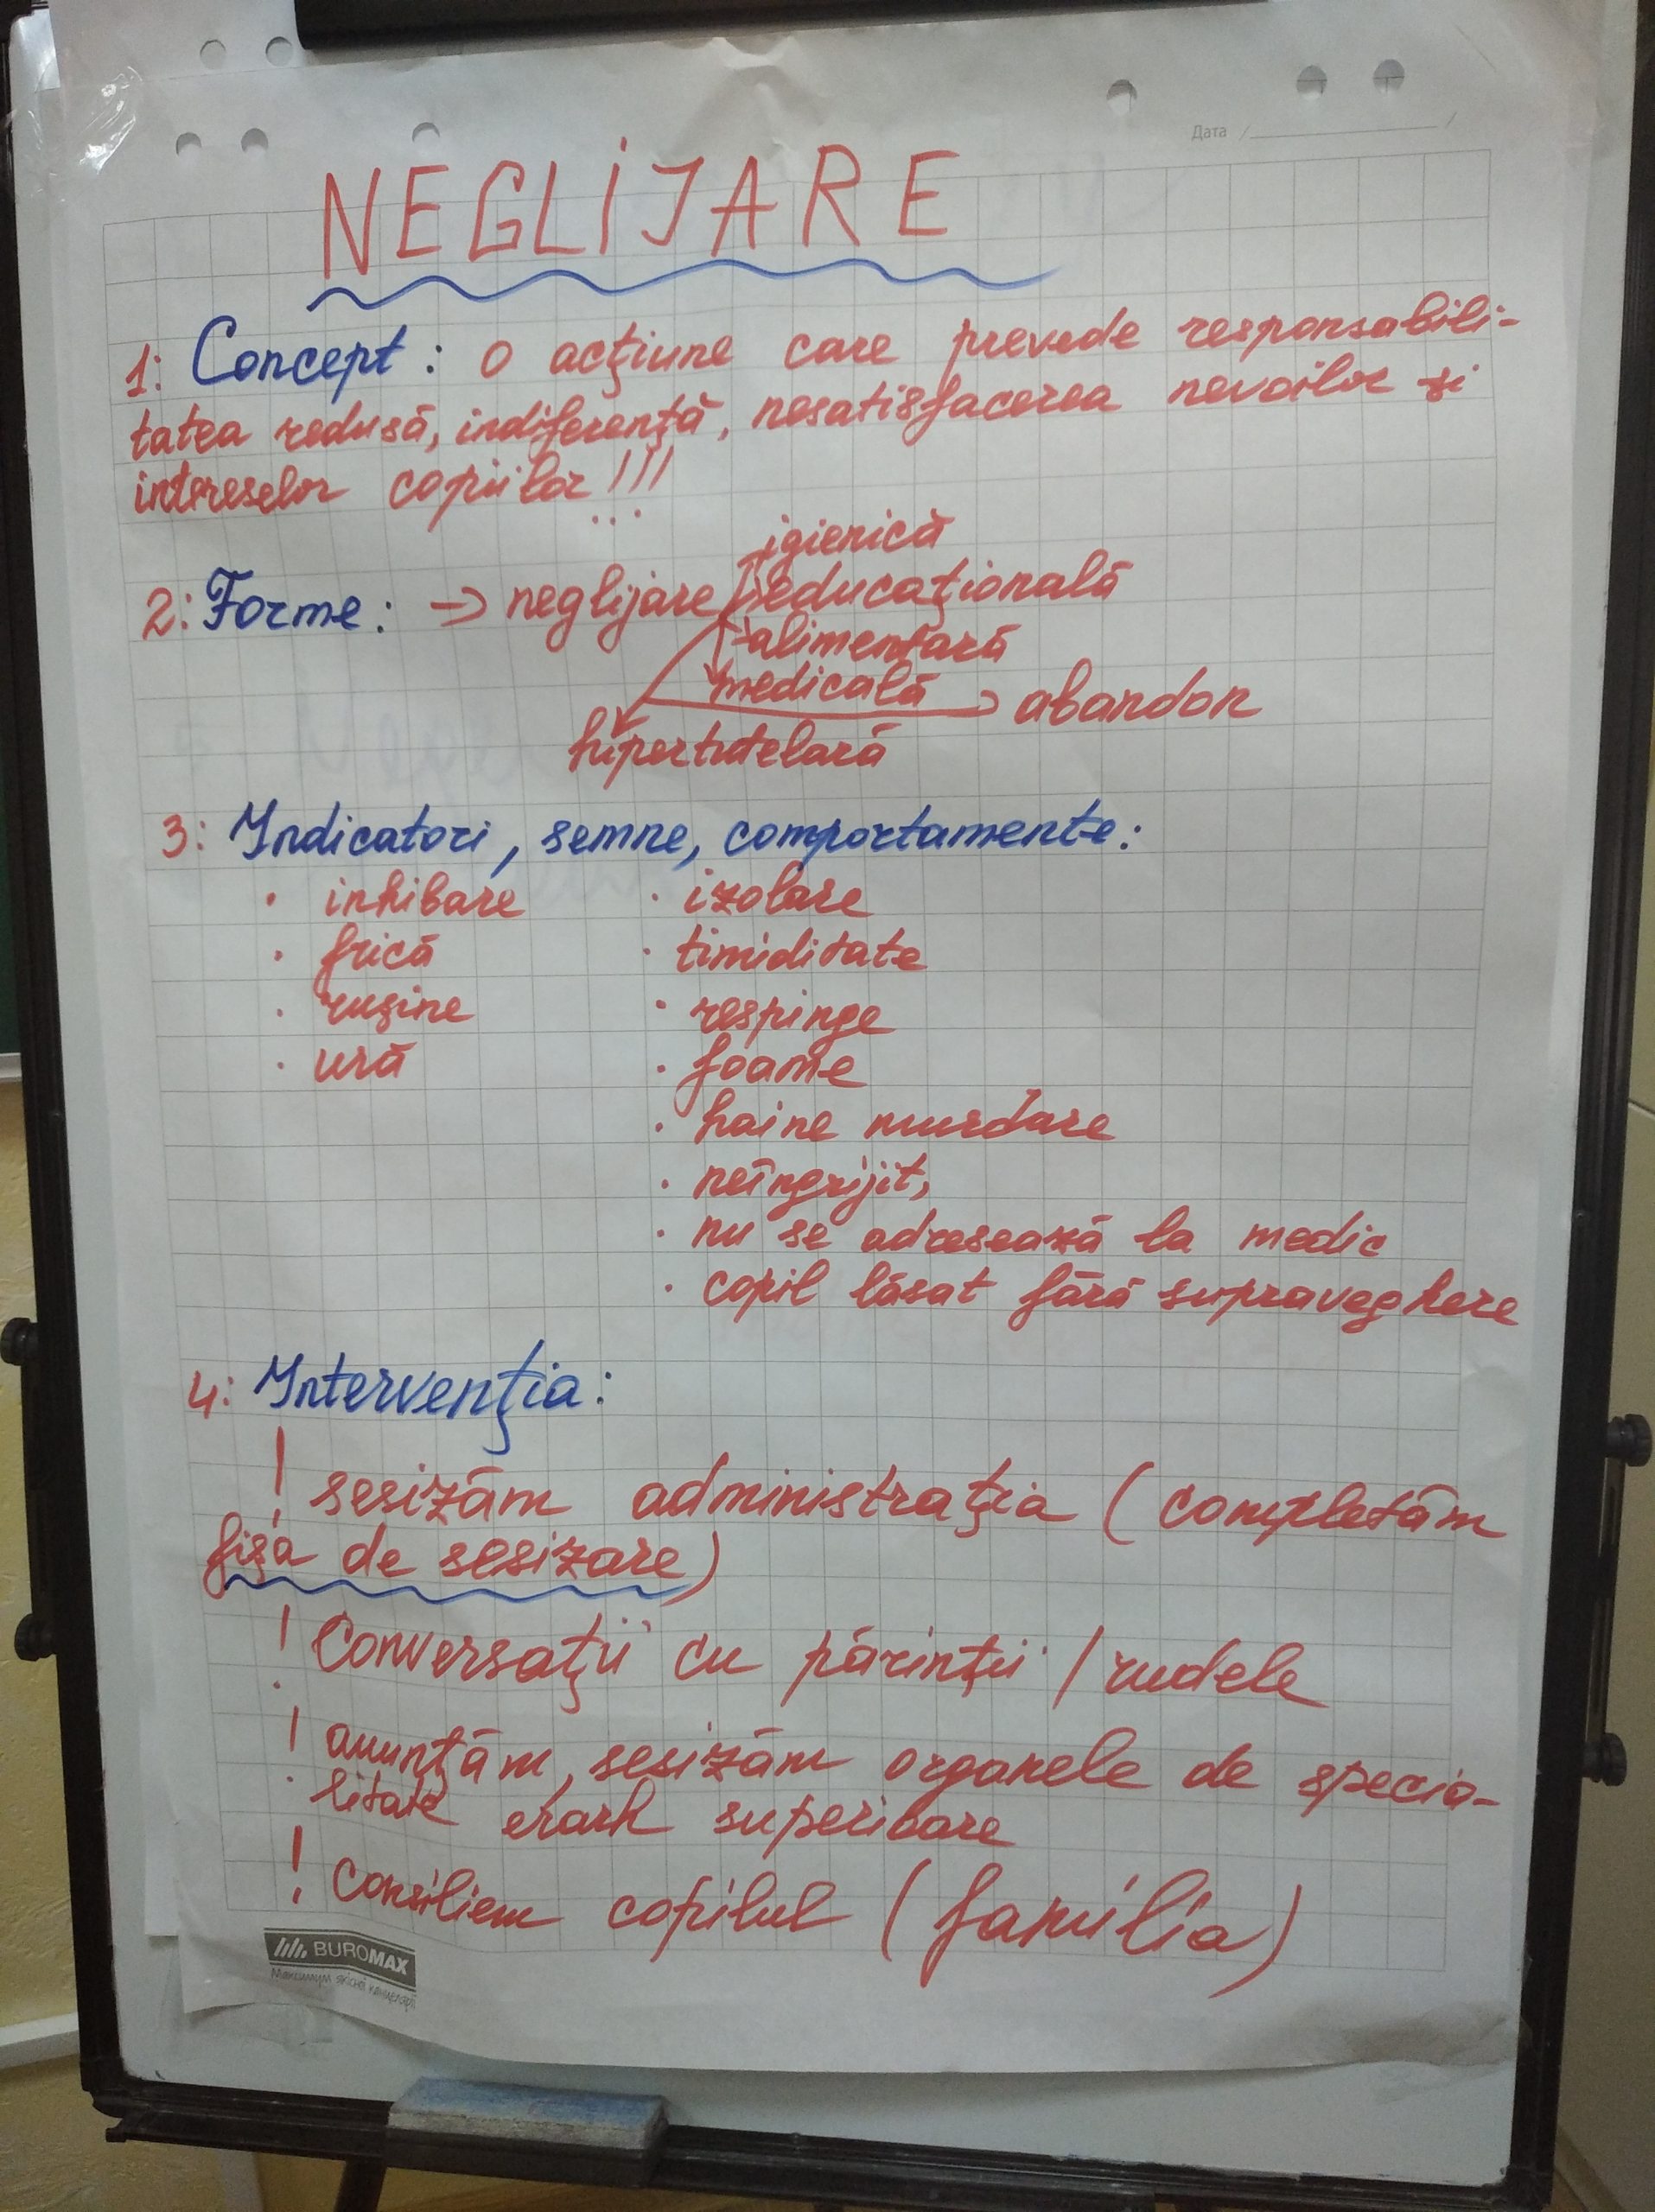 Дата / /
NEGLIJARE
1: Concept: o acțiune care prevede responsabili-
tatea redusă, indiferență, nesatisfacerea nevoilor și
intereselor copiilor!!!
igienică
2: Forme: → neglijare educațională
alimentară
medicală
abandon
hipertutelară
3: Indicatori, semne, comportamente:
· inhibare · izolare
· frică · timiditate
· rușine · respinge
· ură · foame
· haine murdare
· neîngrijit,
· nu se adresează la medic
· copil lăsat fără supraveghere
4: Intervenția:
! sesizăm administrația (completăm
fișa de sesizare)
! Conversații cu părinții / rudele
! anunțăm, sesizăm organele de specia-
litate superioare
! Consiliem copilul (familia)
BUROMAX
Максимум якісної канцелярії